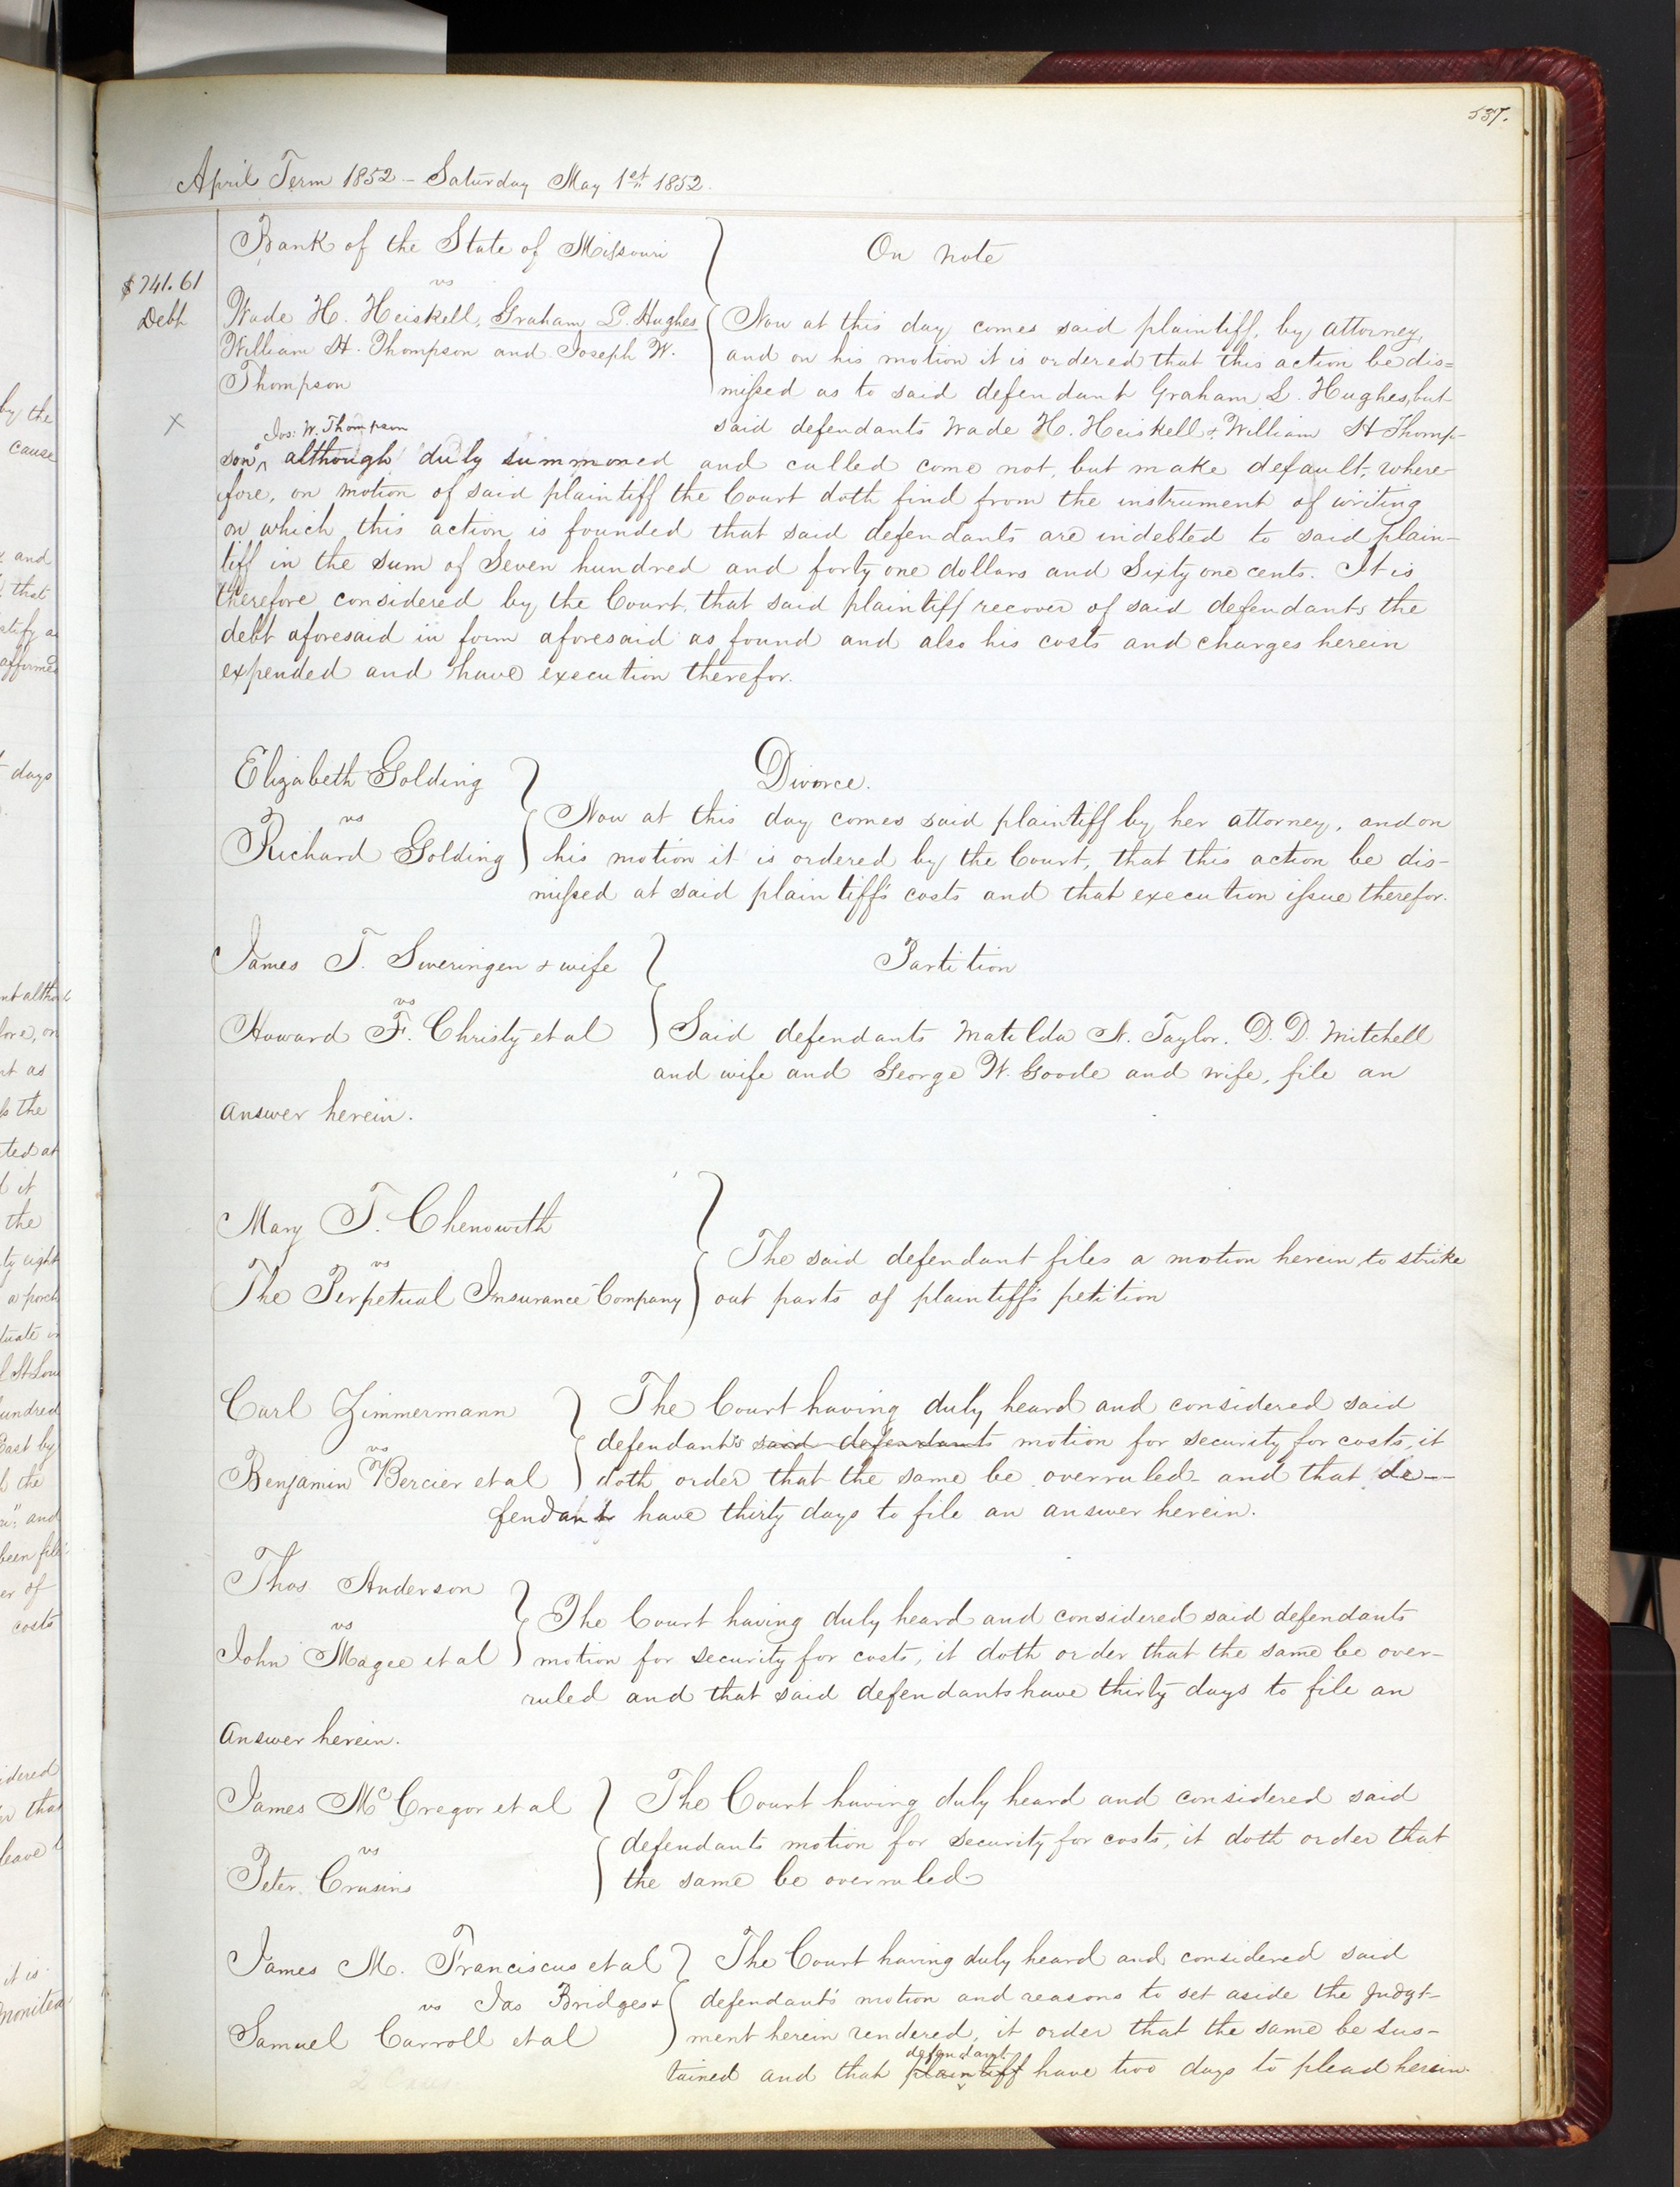 537.
April Term 1852 - Saturday May 1st 1852.
Bank of the State of Missouri
On note
$741.61
vs
Debt
Wade H. Heiskell, Graham L. Hughes
William H. Thompson and Joseph W.
Thompson
Now at this day comes said plaintiff, by attorney,
and on his motion it is ordered that this action be dis=
missed as to said defendant Graham L. Hughes, but
said defendants Wade H. Heiskell & William H Thomp-
X
Jos: W. Thompson
son, although duly summoned and called come not, but make default, where-
fore, on motion of said plaintiff the Court doth find from the instrument of writing
on which this action is founded that said defendants are indebted to said plain-
tiff in the sum of Seven hundred and forty one dollars and Sixty one cents. It is
therefore considered by the Court, that said plaintiff recover of said defendants the
debt aforesaid in form aforesaid as found and also his costs and charges herein
expended and have execution therefor.
Elizabeth Golding
vs
Richard Golding
Divorce.
Now at this day comes said plaintiff by her attorney, and on
his motion it is ordered by the Court, that this action be dis-
missed at said plaintiff's costs and that execution issue therefor.
James T. Sweringen & wife
vs
Howard F. Christy et al
Partition
Said defendants Matilda N. Taylor. D. D. Mitchell
and wife and George W. Goode and wife, file an
answer herein.
Mary T. Chenowith
vs
The Perpetual Insurance Company
The said defendant files a motion herein to strike
out parts of plaintiff's petition
Carl Zimmermann
vs
Benjamin Bercier et al
The Court having duly heard and considered said
defendant's said defendants motion for security for costs, it
doth order that the same be overruled and that de-
fendant have thirty days to file an answer herein.
Thos Anderson
vs
John Magee et al
The Court having duly heard and considered said defendants
motion for security for costs, it doth order that the same be over-
ruled and that said defendants have thirty days to file an
answer herein.
James McCregor et al
vs
Peter Crusins
The Court having duly heard and considered said
defendants motion for security for costs, it doth order that
the same be overruled
James M. Franciscus et al
vs Jas Bridges &
Samuel Carroll et al
The Court having duly heard and considered said
defendant's motion and reasons to set aside the Judgt-
ment herein rendered, it order that the same be sus-
defendant
tained and that plaintiff have two days to plead herein.